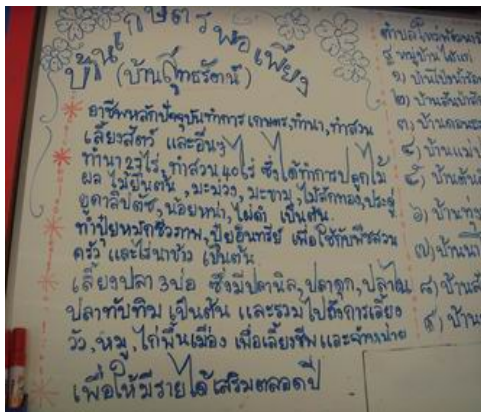 บ้านเกษตรพอเพียง
(บ้านสุทธรัตน์)
อาชีพหลักปัจจุบันทำการเกษตร,ทำนา,ทำสวน
เลี้ยงสัตว์ และอื่นๆ
ทำนา 23 ไร่, ทำสวน 40 ไร่ ซึ่งได้ทำการปลูกไม้
ผล ไม้ยืนต้น, มะม่วง, มะขาม, ไม้สักทอง, ประดู่
ยูคาลิปตัช, น้อยหน่า, ไผ่ดำ เป็นต้น.
ทำปุ๋ยหมักชีวภาพ, ปุ๋ยอินทรีย์ เพื่อใช้กับพืชสวน
ครัว และไร่นาข้าว เป็นต้น
เลี้ยงปลา 3 บ่อ ซึ่งมีปลานิล, ปลาดุก,
ปลาทับทิม เป็นต้น และรวมไปถึงการเลี้ยง
วัว, หมู, ไก่พื้นเมือง เพื่อเลี้ยงชีพและจำหน่าย
เพื่อให้มีรายได้เสริมตลอดปี
๑) บ้าน
๒) บ้าน
๓) บ้าน
๔) บ้าน
๕) บ้าน
๖) บ้าน
๗) บ้าน
๘) บ้าน
๙) บ้าน